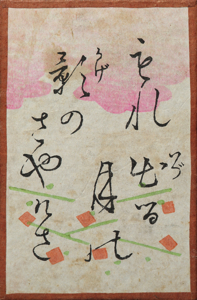 もれ出る
月の
影の
さやけさ